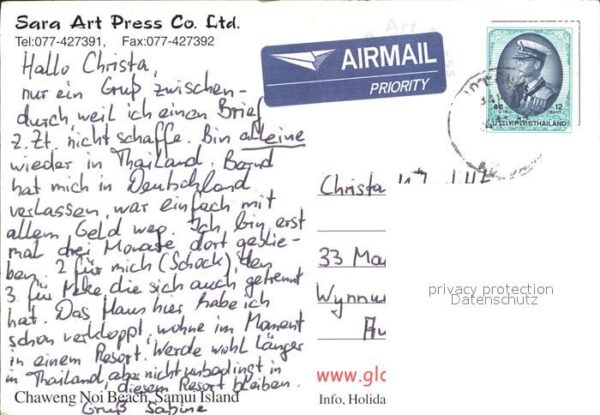 Sara Art Press Co. Ltd.
Tel:077-427391, Fax:077-427392
AIRMAIL
PRIORITY
12
ประเทศไทย THAILAND
Hallo Christa,
nur ein Gruß zwischen-
durch weil ich einen Brief
z.Zt. nicht schaffe. Bin alleine
wieder in Thailand. Bernd
hat mich in Deutschland
verlassen, war einfach mit
allem Geld weg. Ich bin erst
mal drei Monate dort geblie-
ben. 2 für mich (Schock), den
3. für Meke die sich auch getrennt
hat. Das Haus hier habe ich
schon verkloppt, wohne im Moment
in einem Resort. Werde wohl länger
in Thailand aber nicht unbedingt in
diesem Resort bleiben.
Gruß Sabine
Chaweng Noi Beach, Samui Island
Christa
33
privacy protection
Datenschutz
www.glo
Info, Holida